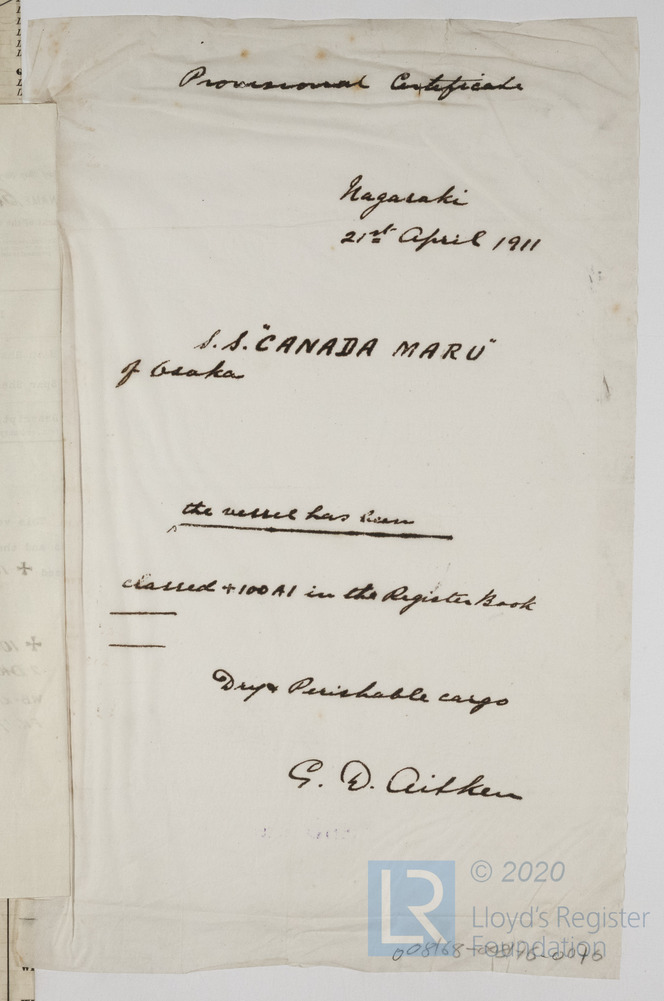 Provisional Certificate
Nagasaki
21st April 1911
S.S. "CANADA MARU"
of Osaka
the vessel has been
classed + 100 A1 in the Register Book
Dry & Perishable cargo
G. D. Aitken
LR
© 2020
Lloyd's Register
Foundation